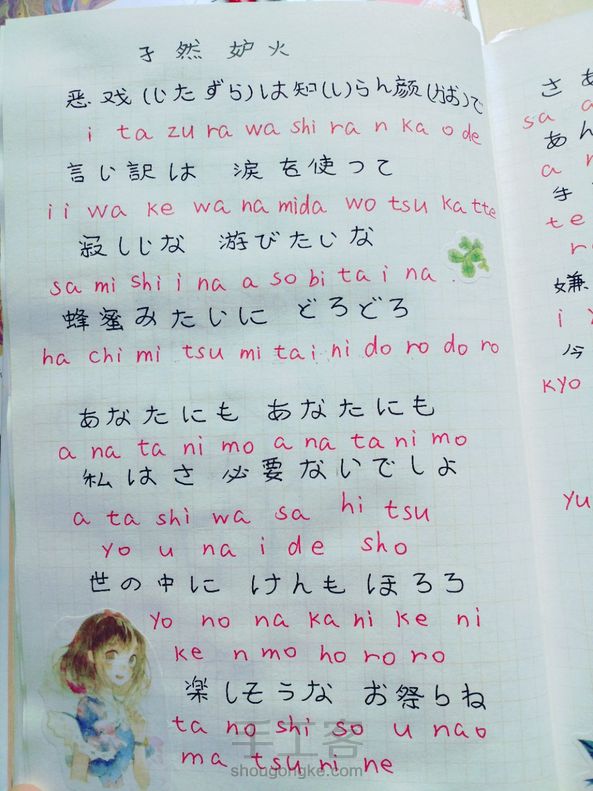 孑然妒火
恶戏(いたずら)は知(し)らん顔(かお)で
i ta zu ra wa shi ra n ka o de
言い訳は 涙を使って
i i wa ke wa na mida wo tsu ka tte
寂しいな 遊びたいな
sa mi shi i na a so bi ta i na
蜂蜜みたいに どろどろ
ha chi mi tsu mi ta i ni do ro do ro
あなたにも あなたにも
a na ta ni mo a na ta ni mo
私はさ 必要ないでしょ
a ta shi wa sa hi tsu
yo u na i de sho
世の中に けんもほろろ
yo no na ka ni ke ni
ke n mo ho ro ro
楽しそうな お祭りね
ta no shi so u na o
ma tsu ri ne
手工客
shougongke.com
さあ
sa
あん
a
手
te
嫌
i
今
kyo
yu